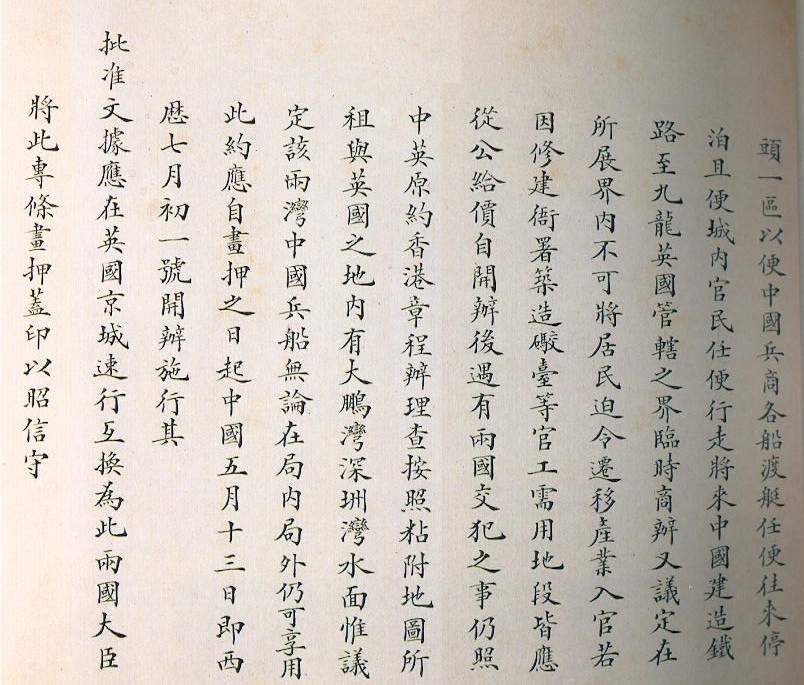 頭一區以便中國兵商各船渡艇任便往來停
泊且便城内官民任便行走將來中國建造鐵
路至九龍英國管轄之界臨時商辦又議定在
所展界内不可將居民迫令遷移產業入官若
因修建衙署築造礮臺等官工需用地段皆應
從公給價自開辦後遇有兩國交犯之事仍照
中英原約香港章程辦理查按照粘附地圖所
租與英國之地内有大鵬灣深圳灣水面惟議
定該兩灣中國兵船無論在局内局外仍可享用
此約應自畫押之日起中國五月十三日即西
歷七月初一號開辦施行其
批准文據應在英國京城速行互換為此兩國大臣
將此專條畫押蓋印以昭信守